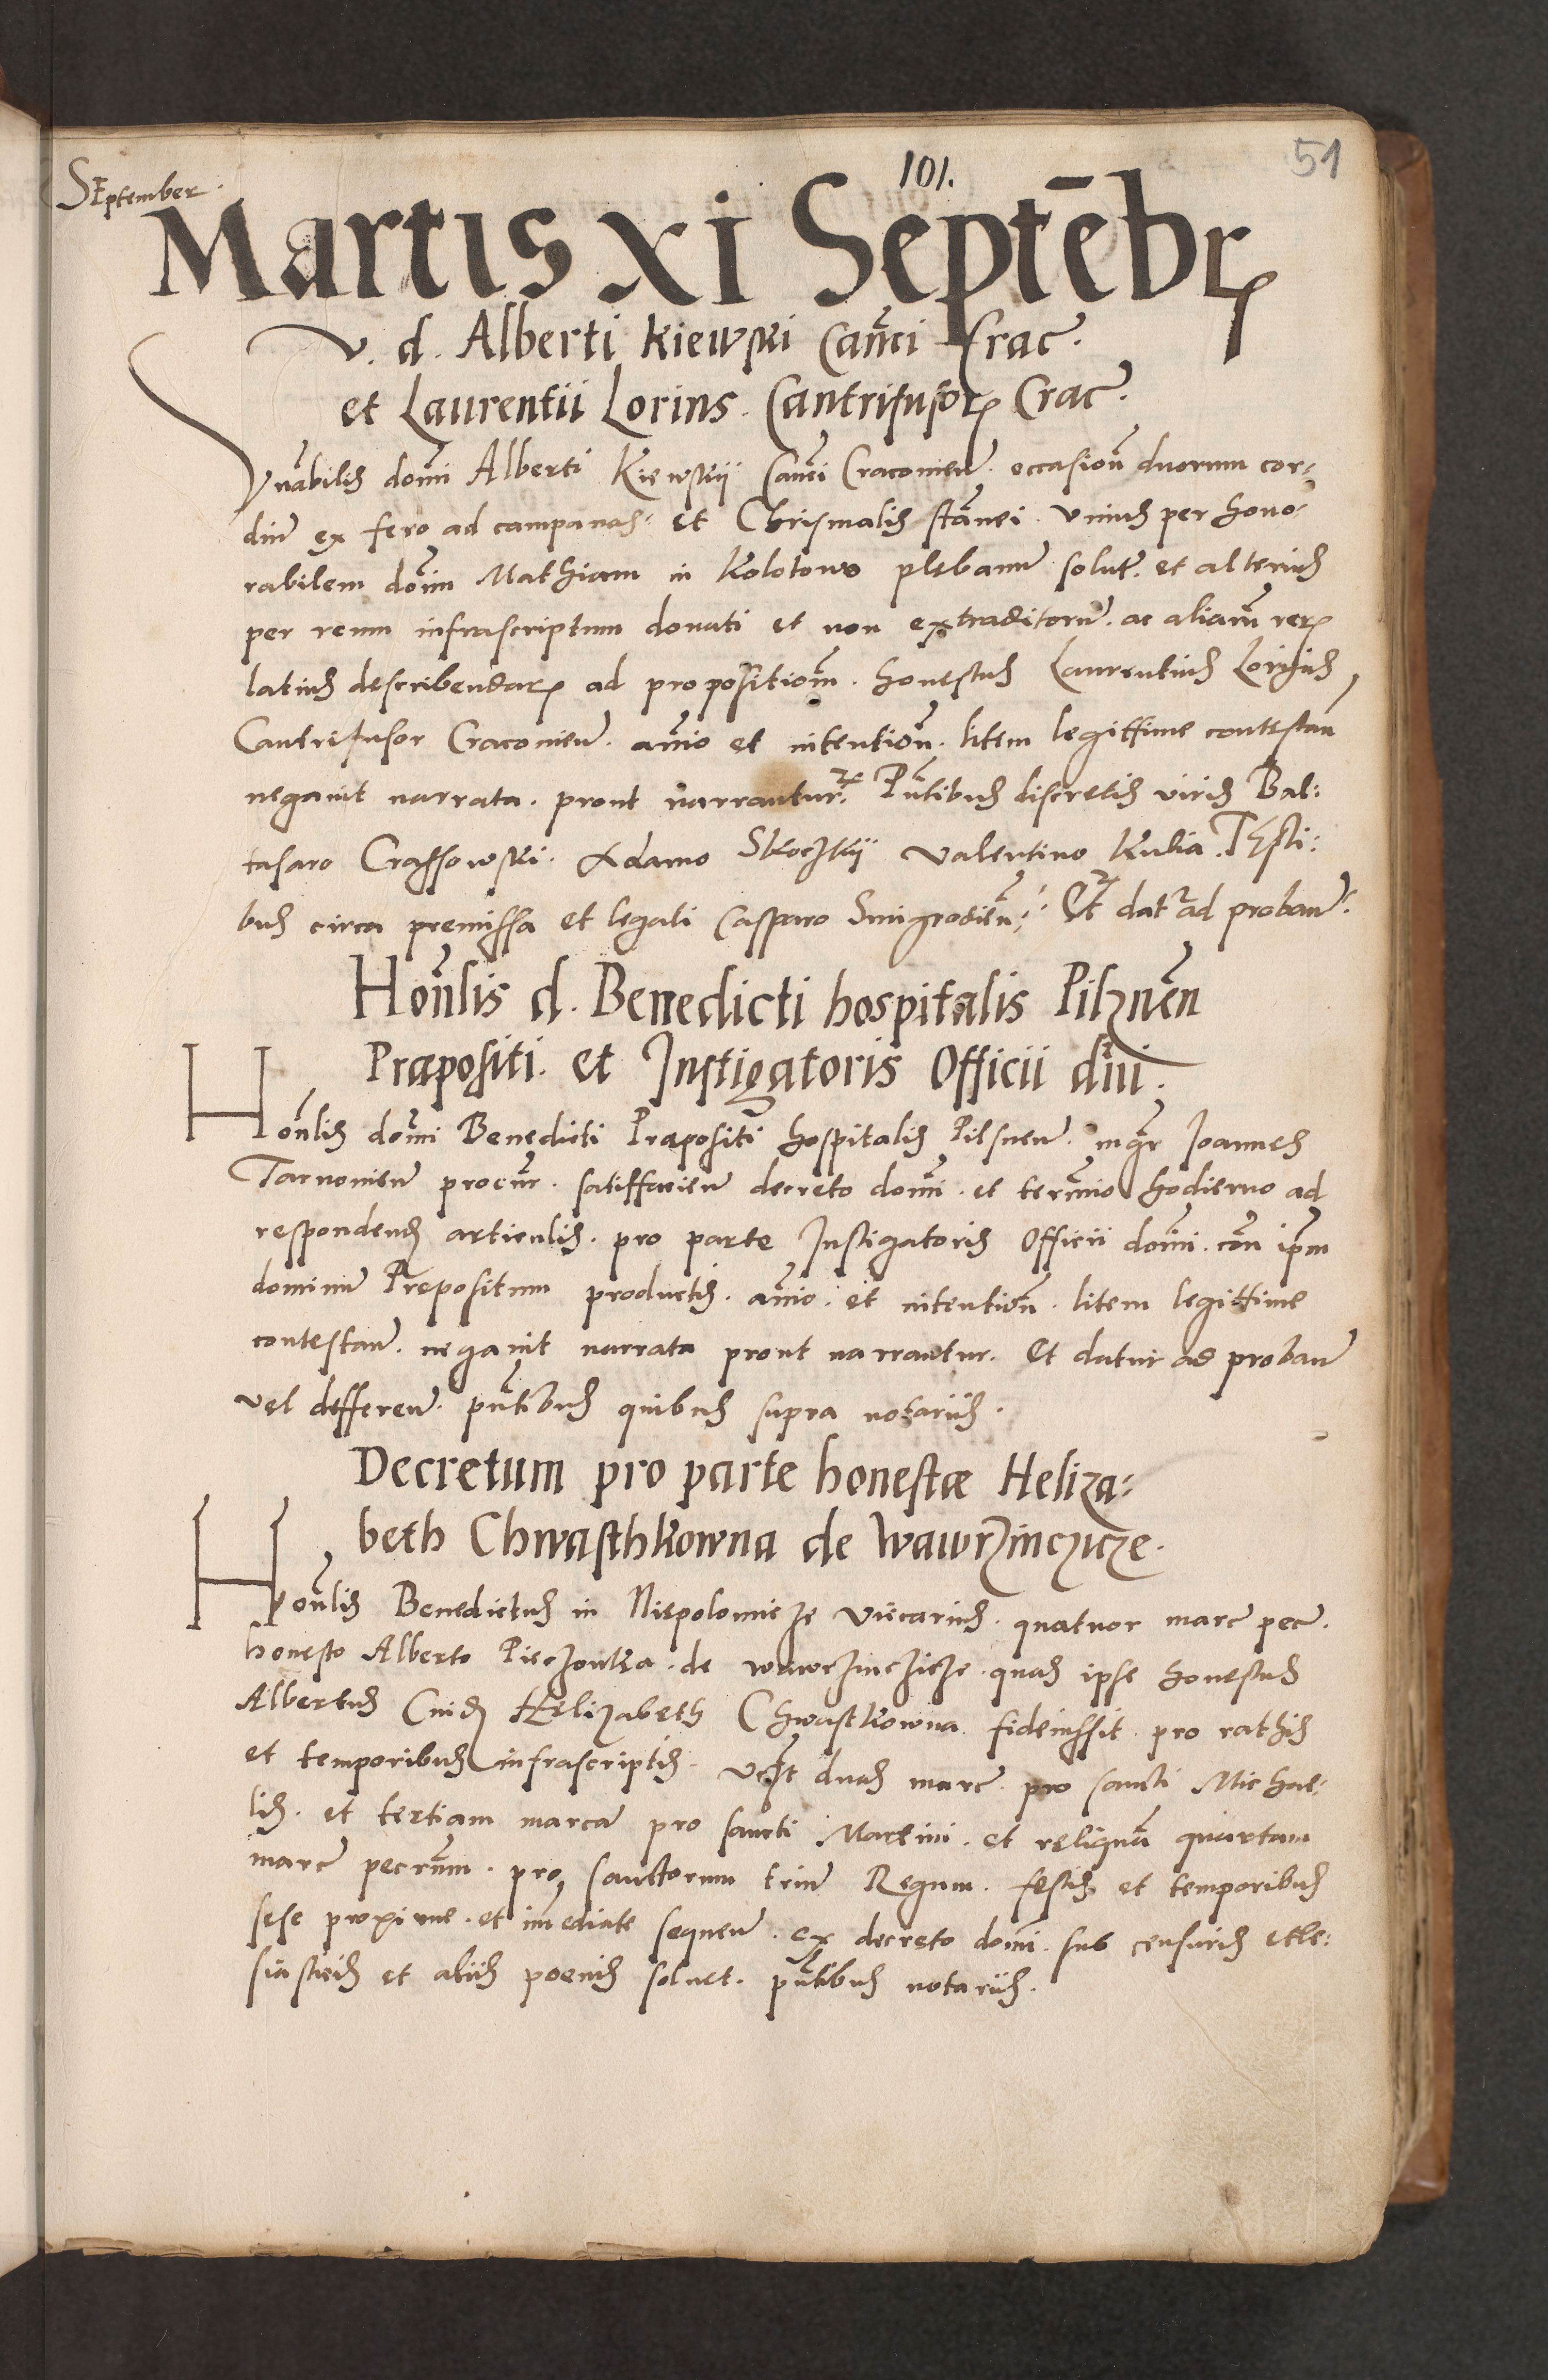 51
101.
SEptember.
Martis XI Septēbr
v. d. Alberti Kiewski Canci Crac.
et Laurentii Lorins. Cantrifusor Crac.
Vnabilis domi Alberti Kiewskii Canci Cracovien. occasion duorum cor-
diu ex fero ad campanas. et Chrismalis stanei. Vnius per hono-
rabilem domi Mathiam in Kolotowo plebanu solut. et alterius
per reum infrascriptum donati et non extraditoru. ac aliarm rer
latius describendar ad propositiom. honestus Laurentius Loryns
Cantrifusor Cracovien. animo et intention. litem legittime contestan
negavit narrata. prout narrantur. Pntibus discretis viris Bal:
tasaro Crassowski. Adamo Skoczkii Valentino Kulia. Testi:
bus circa premissa et legali Casparo Smigrodien. Et datr ad proban.
Honlis d. Benedicti hospitalis Pilznen
Præpositi. et Instigatoris Officii dni.
Honlis domi Benedicti Præpositi hospitalis Pilsnen. mgr Joannes
Tarnovien procur. satisfacien decreto domi. et termino hodierno ad
respondend articulis. pro parte Instigatoris Officii domi. con ipm
dominu Prepositum productis. animo. et intention. litem legittime
contestan. negavit narrata prout narrantur. Et datur ad proban
vel defferen. pntibus quibus supra notariis.
Decretum pro parte honestæ Heliza:
beth Chwasthkowna de Wawrzinczicze.
Honlis Benedictus in Niepolomicze Viccarius. quatuor marc pec.
honesto Alberto Pieczonka. de wawrzinczicze. quas ipse honestus
Albertus Cuid Helizabeth Chwastkowna fideiussit pro rathis
et temporibus infrascriptis. Vcst duas marc. pro sancti Michae-
lis. et tertiam marca pro sancti Martini. et reliqua quartam
marc pecunm. pro sanctorum triu Regum. festis et temporibus
sese proxime. et imediate sequen. ex decreto domi. sub censuris eccle:
siasticis et aliis poenis solvet. pntibus notariis.